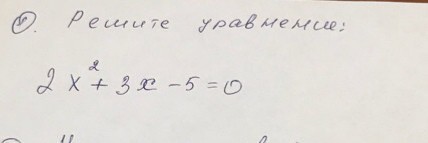 Решите уравнение:
2x² + 3x - 5 = 0